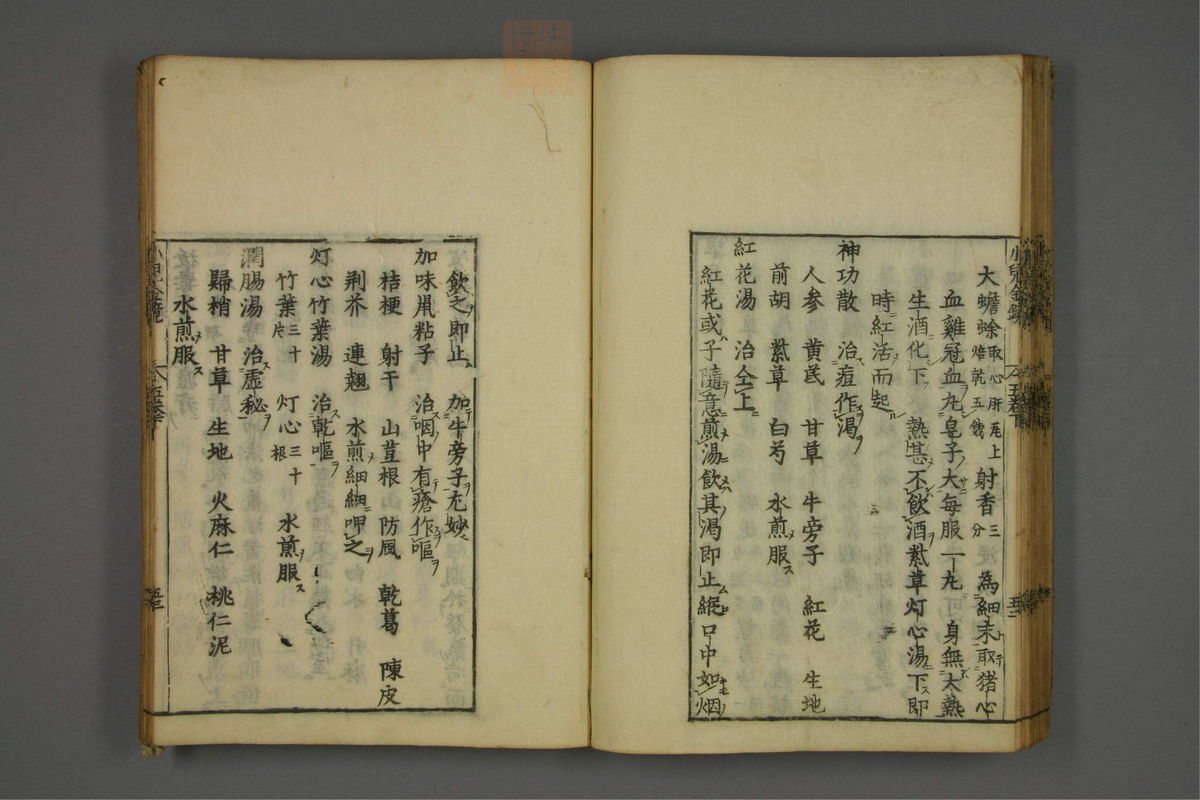 大蟾蜍取心肝尾上焙乾五錢 射香三分 為細末取猪心
血雞冠血丸皂子大每服一丸可身無大熱
生酒化下 熱甚不飲酒紫草灯心湯下即
時紅活而起
神功散 治痘作渴
人参 黄芪 甘草 牛旁子 紅花 生地
前胡 紫草 白芍 水煎服
紅花湯 治仝上
紅花或子隨意煎湯飲其渇即止縱口中如烟
飲之即止 加牛旁子尤妙
加味鼡粘子 治咽中有瘡作嘔
桔梗 射干 山荳根 防風 乾葛 陳皮
荆芥 連翹 水煎細細呷之
灯心竹葉湯 治乾嘔
竹葉三十片 灯心三十根 水煎服
潤腸湯 治虚秘
歸梢 甘草 生地 火麻仁 桃仁泥
水煎服